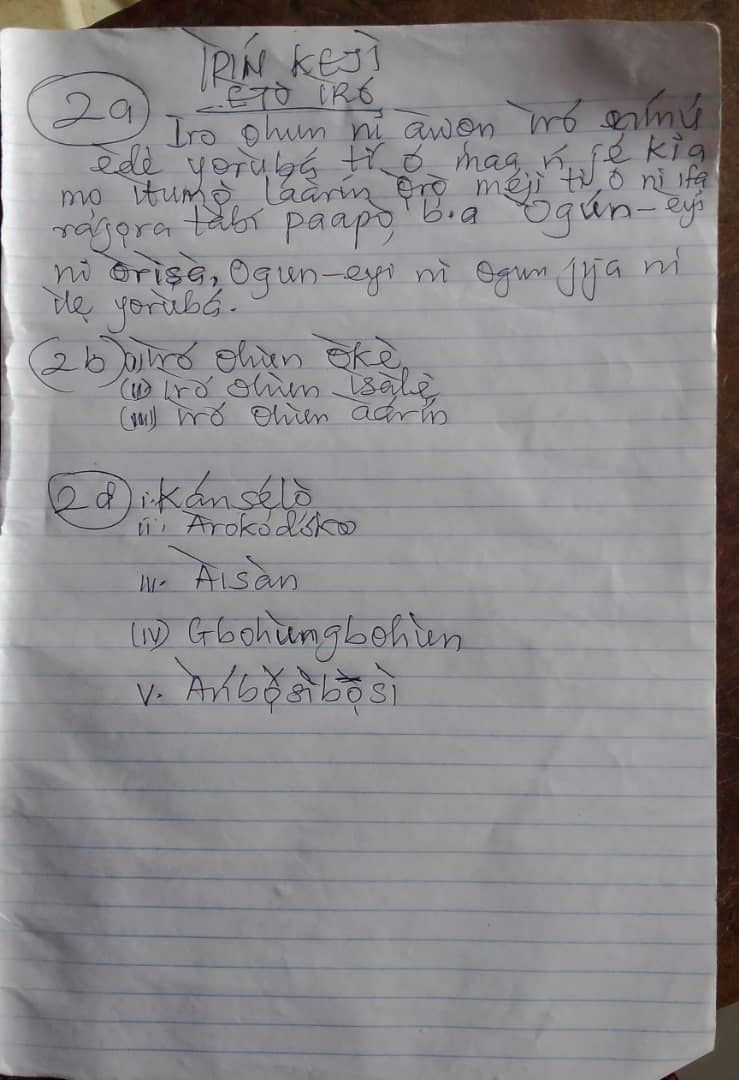 ÌRÍN KEJÌ
ETÒ ÌRÓ
2a Iro ohun nì àwon ìró nínú
èdè yorùbá tì ó maa ń jé kìa
mo ìtumò láàrín òrò méjì tì ó nì ìfa
rágọra tàbí paapò, b.a Ògún-eyi
nì òrìsà, Ogun-eyi nì Ogun jija nì
ilẹ yorùbá.
2b (i) ìró ohùn òkè
(ii) ìró ohùn ìsàlè
(iii) ìró ohùn àárín
2d i. Kánsélò
ii. Arokódóko
iii. Àìsàn
(iv) Gbohùngbohùn
v. Àńbọ̀sìbọ̀sì